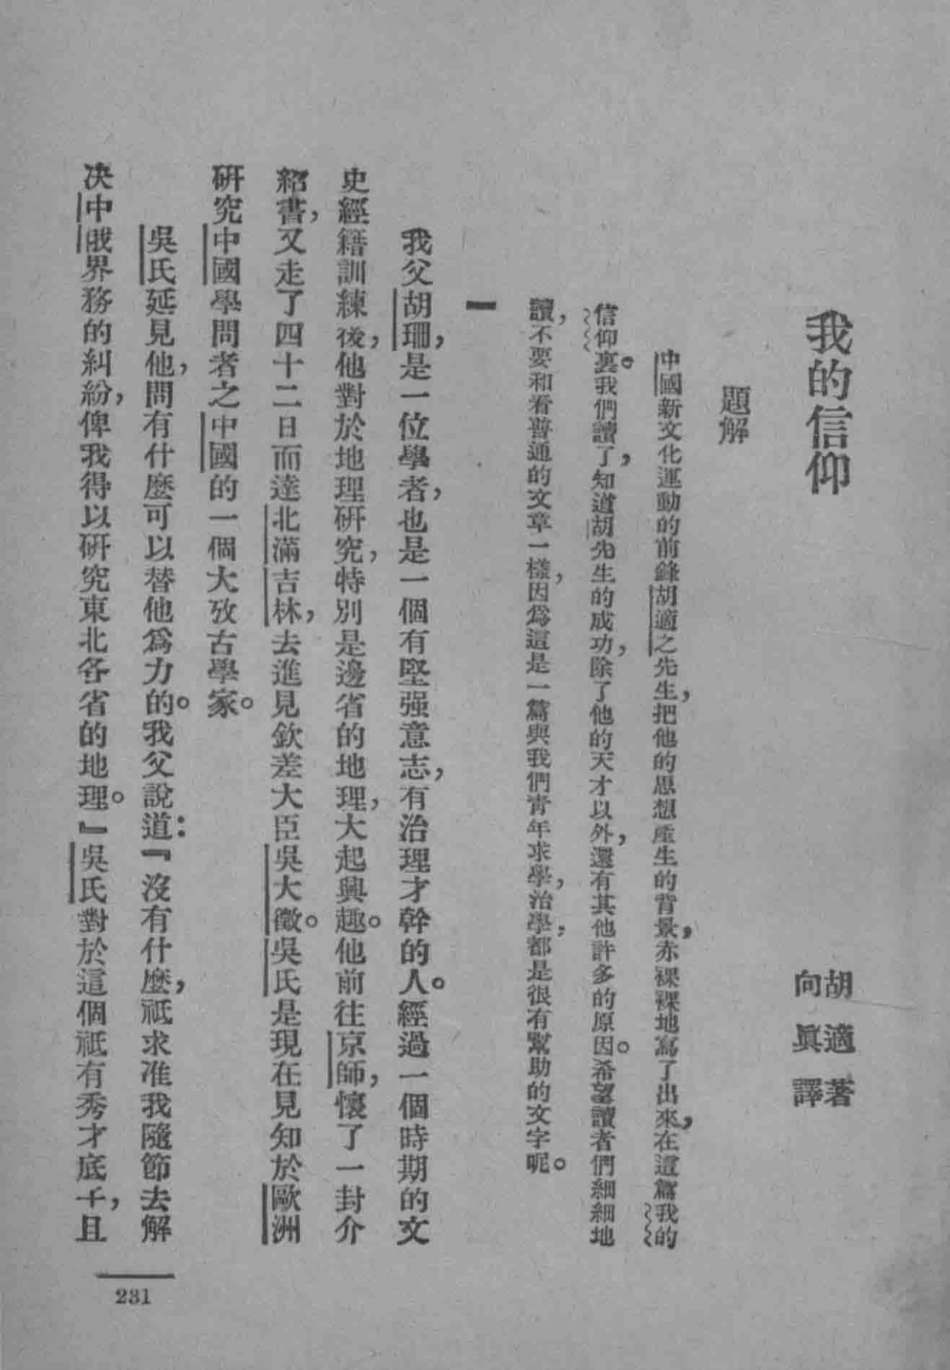 我的信仰
胡適著
向眞譯
題解
中國新文化運動的前鋒胡適之先生，把他的思想產生的背景，赤裸裸地寫了出來，在這篇我的
信仰裏。我們讀了，知道胡先生的成功，除了他的天才以外，還有其他許多的原因。希望讀者們細細地
讀，不要和看普通的文章一樣，因爲這是一篇與我們青年求學，治學，都是很有幫助的文字呢。
一
我父胡珊，是一位學者，也是一個有堅强意志，有治理才幹的人。經過一個時期的文
史經籍訓練後，他對於地理研究，特別是邊省的地理，大起興趣。他前往京師，懷了一封介
紹書，又走了四十二日而達北滿吉林，去進見欽差大臣吳大徵。吳氏是現在見知於歐洲
研究中國學問者之中國的一個大攷古學家。
吳氏延見他，問有什麼可以替他爲力的。我父說道：『沒有什麼，祇求准我隨節去解
决中俄界務的糾紛，俾我得以研究東北各省的地理。』吳氏對於這個祇有秀才底子，且
231